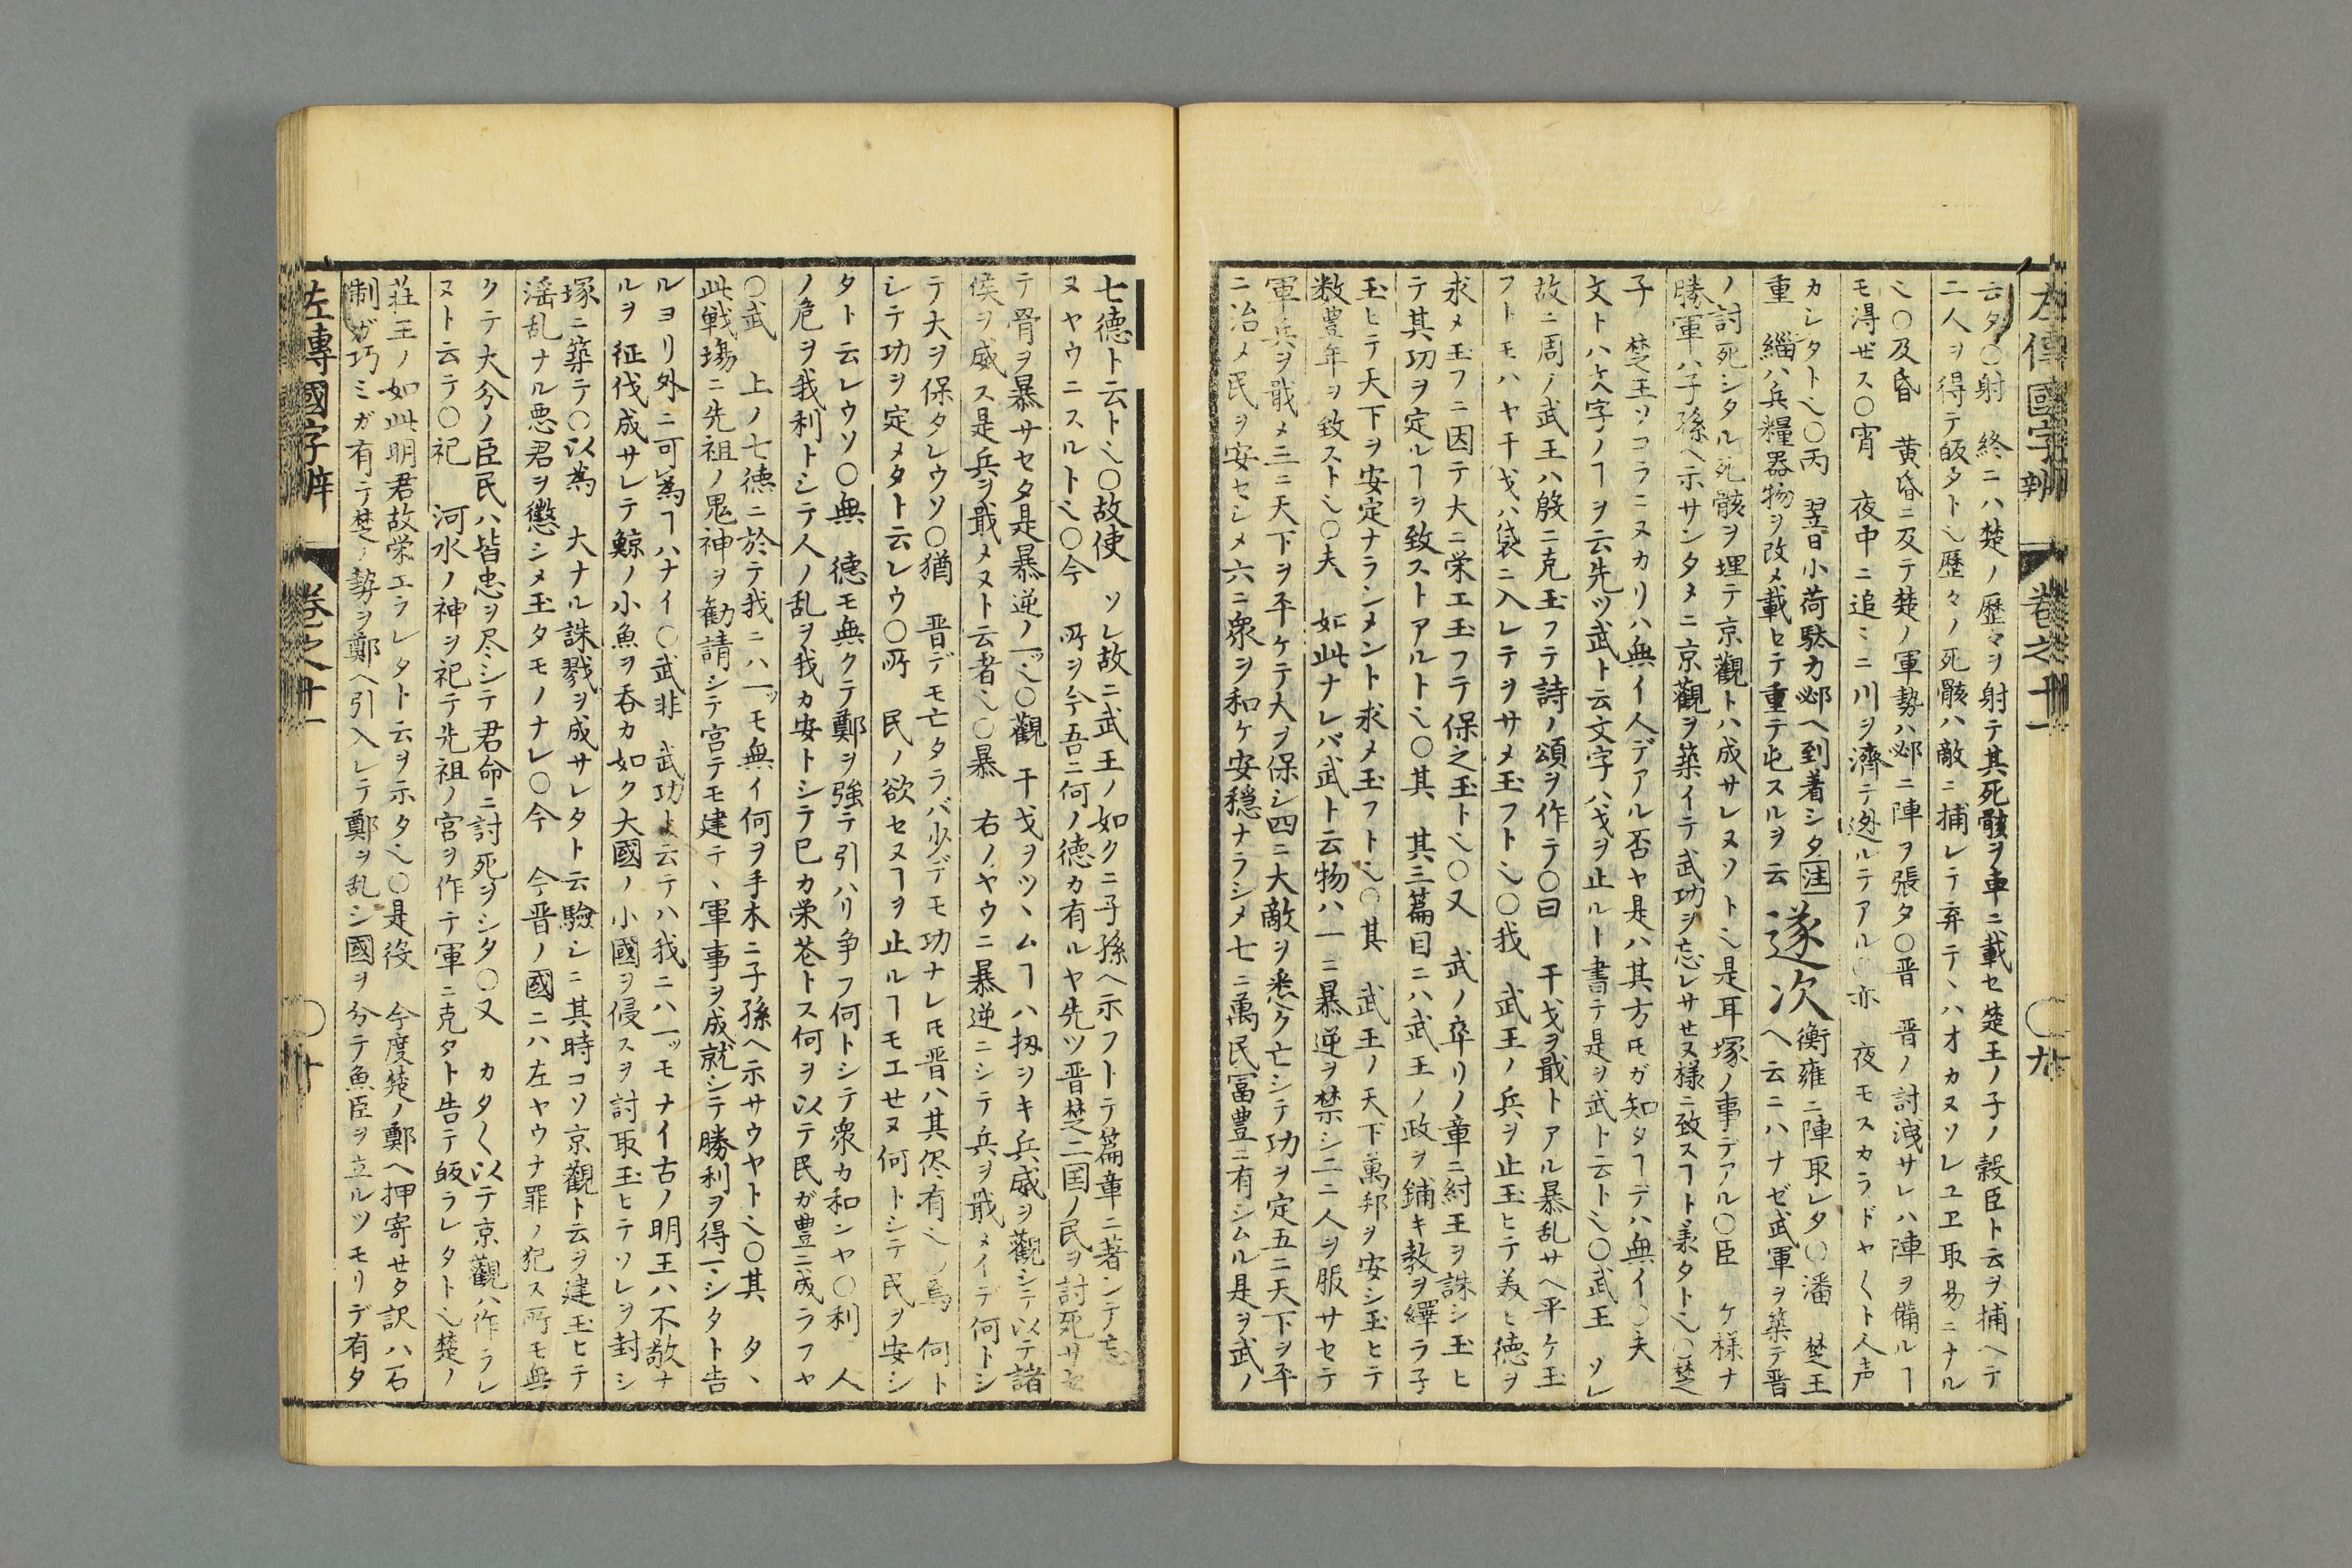 左傳國字辨 卷之十一 〇十九
云タ〇射　終ニハ楚ノ歴々ヲ射テ其死骸ヲ車ニ載セ楚王ノ子ノ穀臣ト云ヲ捕ヘテ
二人ヲ得テ皈タト〻歴々ノ死骸ハ敵ニ捕レテ弃テ丶ハオカヌソレユヱ取易ニナル
〻〇及昏　黄昏ニ及テ楚ノ軍勢ハ邲ニ陣ヲ張タ〇晋　晋ノ討洩サレハ陣ヲ備ルヿ
モ淂ゼス〇宵　夜中ニ追ミニ川ヲ濟テ迯ルテアル〇亦　夜モスカラドヤ〱ト人声
カシタト〻〇丙　翌日小荷駄カ邲ヘ到着シタ注遂次衡雍ニ陣取レタ〇潘　楚王
重　緇ハ兵糧器物ヲ改メ載セテ重テ屯スルヲ云ヘ云ニハナゼ武軍ヲ築テ晋
ノ討死シタル死骸ヲ埋テ京觀トハ成サレヌソト〻是耳塚ノ事デアル〇臣　ケ様ナ
勝軍ハ子孫ヘ示サンタメニ京觀ヲ築イテ武功ヲ忘レサセヌ様ニ致スヿト羕タト〻〇楚
子　楚王ソコラニヌカリハ無イ人デアル否ヤ是ハ其方𪜈ガ知タヿデハ無イ〇夫
文トハケヘ字ノヿヲ云先ツ武ト云文字ハ戈ヲ止ルト書テ是ヲ武ト云ト〻〇武王　ソレ
故ニ周ノ武王ハ殷ニ克玉フテ詩ノ頌ヲ作テ〇曰　干戈ヲ戢トアル暴乱サヘ平ケ玉
フトモハヤ干戈ハ袋ニ入レテヲサメ玉フト〻〇我　武王ノ兵ヲ止玉ヒテ美ヒ徳ヲ
求メ玉フニ因テ大ニ栄エ玉フテ保之玉ト〻〇又　武ノ卒リノ章ニ紂王ヲ誅シ玉ヒ
テ其功ヲ定ルヿヲ致ストアルト〻〇其　其三篇目ニハ武王ノ政ヲ鋪キ教ヲ繹ラ子
玉ヒテ天下ヲ安定ナランメント求メ玉フト〻〇其　武王ノ天下萬邦ヲ安シ玉ヒテ
数豊年ヲ致スト〻〇夫　如此ナレバ武ト云物ハ一ニ暴逆ヲ禁シ二ニ人ヲ服サセテ
軍兵ヲ戢メ三ニ天下ヲ平ケテ大ヲ保シ四ニ大敵ヲ悉ク亡シテ功ヲ定五ニ天下ヲ平
ニ治メ民ヲ安セシメ六ニ衆ヲ和ケ安穏ナラシメ七ニ萬民冨豊ニ有シムル是ヲ武ノ
七徳ト云ト〻〇故使　ソレ故ニ武王ノ如クニ子孫ヘ示フトテ篇章ニ著ンテ忘
ヌヤウニスルト〻〇今　所ヲ今吾ニ何ノ徳カ有ルヤ先ツ晋楚二国ノ民ヲ討死サセ
テ骨ヲ暴サセタ是暴逆ノ一ッ〻〇觀　干戈ヲツヽムヿハ扨ヲキ兵威ヲ觀シテ以テ諸
侯ヲ威ス是兵ヲ戢メヌト云者〻〇暴　右ノヤウニ暴逆ニシテ兵ヲ戢メイデ何トシ
テ大ヲ保タレウソ〇猶　晋デモ亡タラバ少デモ功ナレ𪜈晋ハ其侭有〻〇焉　何ト
シテ功ヲ定メタト云レウ〇所　民ノ欲セヌヿヲ止ルヿモエせヌ何トシテ民ヲ安シ
タト云レウソ〇無　徳モ無クテ鄭ヲ強テ引ハリ争フ何トシテ衆カ和ンヤ〇利　人
ノ危ヲ我利トシテ人ノ乱ヲ我カ安トシテ已カ栄苍トス何ヲ以テ民ガ豊ニ成ラフヤ
〇武　上ノ七徳ニ於テ我ニハ一ッモ無イ何ヲ手木ニ子孫ヘ示サウヤト〻〇其　タヽ
此戦塲ニ先祖ノ鬼神ヲ勧請シテ宮テモ建テヽ軍事ヲ成就シテ勝利ヲ得一シタト告
ルヨリ外ニ可為ヿハナイ〇武非　武功ト云テハ我ニハ一ッモナイ古ノ明王ハ不敬ナ
ルヲ征伐成サレテ鯨ノ小魚ヲ呑カ如ク大國ノ小國ヲ侵スヲ討取玉ヒテソレヲ封シ
塚ニ築テ〇以為　大ナル誅戮ヲ成サレタト云驗シニ其時コソ京觀ト云ヲ建玉ヒテ
滛乱ナル悪君ヲ懲シメ玉タモノナレ〇今　今晋ノ國ニハ左ヤウナ罪ノ犯ス所モ無
クテ大分ノ臣民ハ皆忠ヲ尽シテ君命ニ討死ヲシタ〇又　カタ〱以テ京觀ハ作ラレ
ヌト云テ〇祀　河水ノ神ヲ祀テ先祖ノ宮ヲ作テ軍ニ克タト告テ皈ラレタト〻楚ノ
荘王ノ如此明君故栄エラレタト云ヲ示タ〻〇是役　今度楚ノ鄭ヘ押寄せタ訳ハ石
制ガ巧ミガ有テ楚ノ勢ヲ鄭ヘ引入レテ鄭ヲ乱シ國ヲ分テ魚臣ヲ立ルツモリデ有タ
左傳國字辨 卷之十一 〇廿